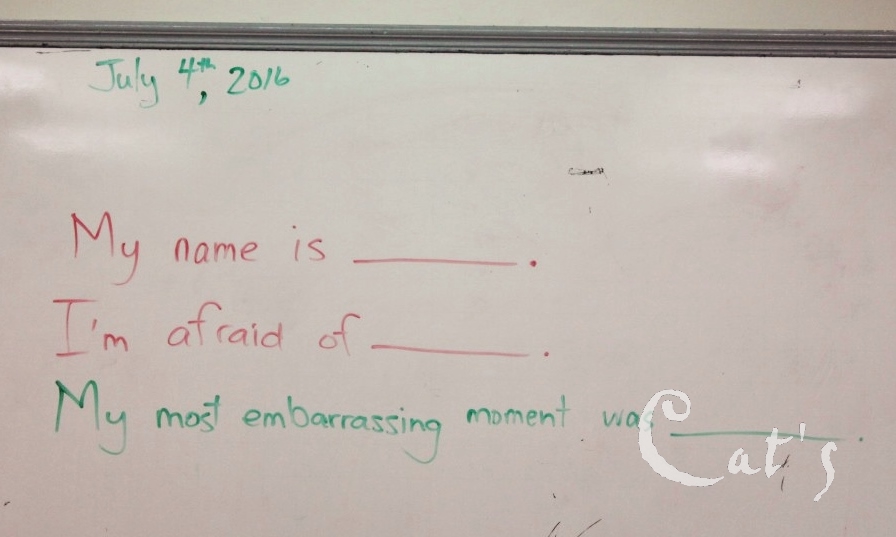 July 4th, 2016
My name is ________.
I'm afraid of ________.
My most embarrassing moment was ________.
Cat's